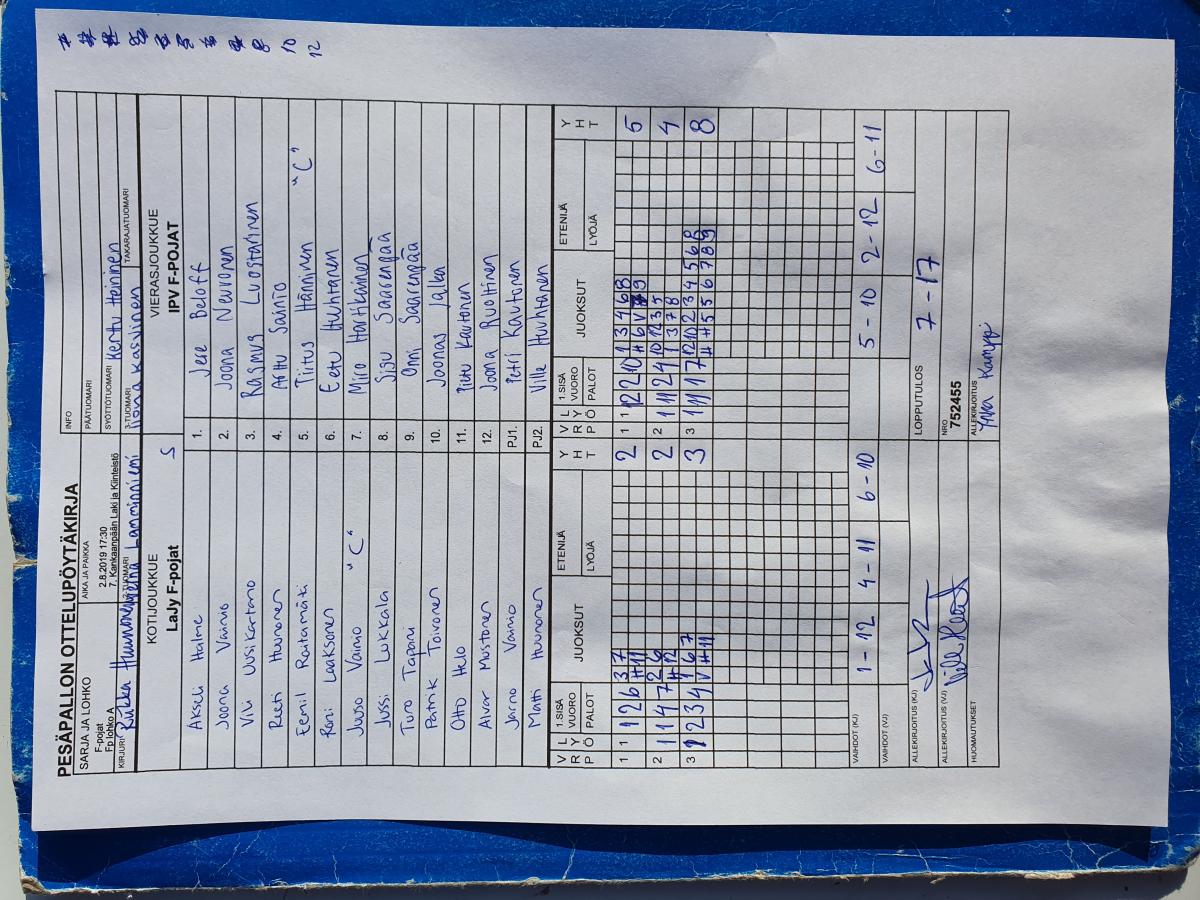 PESÄPALLON OTTELUPÖYTÄKIRJA
SARJA JA LOHKO
F-pojat
Fp lohko A
AIKA JA PAIKKA
2.8.2019 17:30
7, Kankaanpään Laki ja Kiinteistö
INFO
PÄÄTUOMARI
SYÖTTÖTUOMARI Kerttu Heininen
KIRJURI Riikka Huunonen
2-TUOMARI Lamminniemi
3-TUOMARI Ilona Kasvinen
TAKARAJATUOMARI
KOTIJOUKKUE
LaJy F-pojat S
VIERASJOUKKUE
IPV F-POJAT
Akseli Halme 1. Jere Beloff
Joona Vainio 2. Joona Nevonen
Vili Uusikartano 3. Rasmus Luostarinen
Reeti Huunonen 4. Arttu Sainio
Eemil Raitamäki 5. Tiitus Hänninen "C"
Roni Laaksonen 6. Eetu Huhtanen
Juuso Vainio "C" 7. Miro Hartikainen
Jussi Lukkala 8. Sisu Saarenpää
Turo Tapani 9. Onni Saarenpää
Patrik Toivonen 10. Joonas Jalka
Otto Helo 11. Piitu Kautonen
Aivar Mustonen 12. Joona Ruottinen
Jarno Vainio PJ1. Petri Kautonen
Matti Huunonen PJ2. Ville Huuhtanen
V R P L Y Ö 1.SISÄ VUORO PALOT JUOKSUT ETENIJÄ LYÖJÄ Y H T
V R P L Y Ö 1.SISÄ VUORO PALOT JUOKSUT ETENIJÄ LYÖJÄ Y H T
1 1 1 2 6 3 7 2
#11
1 1 12 2 10 1 3 4 6 8 5
2 1 1 4 7 2 6 2
#12
2 1 11 2 4 10 12 3 5 4
1 3 7 8
3 1 2 3 4 1 6 7 3
V #11
3 1 11 1 7 12 10 2 3 4 5 6 8 8
# # 5 5 6 7 8 9
VAIHDOT (KJ) 1-12 4-11 6-10 5-10 2-12 6-11
VAIHDOT (VJ)
ALLEKIRJOITUS (KJ)
LOPPUTULOS 7-17
ALLEKIRJOITUS (VJ)
NRO
752455
HUOMAUTUKSET
ALLEKIRJOITUS
10
12